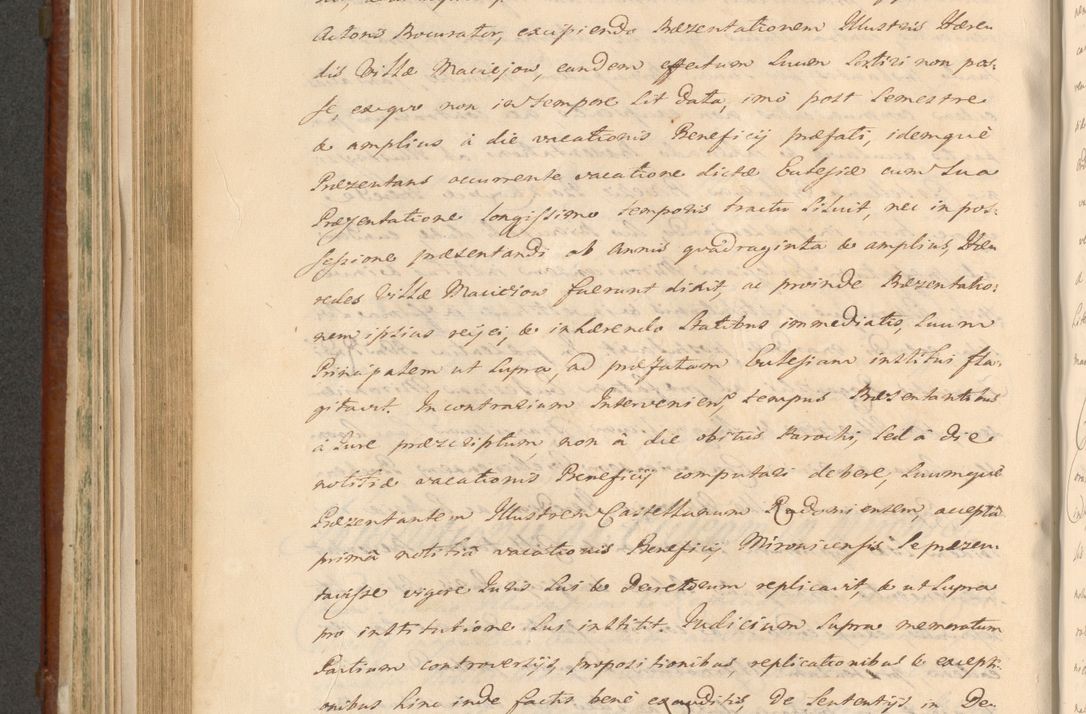 Actoris Procurator, excipiendo Præzentationem Illustris Hære-
dis Villæ Maciejow, eandem effectum suum sortiri non pos-
se, ex quo non in tempore sit data, imò post semestre
& amplius à die vacationis Beneficij præfati, idemquè
Præzentans occurrente vacatione dictæ Ecclesiæ cum sua
Præzentatione longissimo temporis tractu siluit, nec in pos-
sessione præsentandi ab Annis quadraginta & amplius, Hæ-
redes Villæ Maciejow fuerunt dixit, ac proinde Præzentatio-
nem ipsius reijci, & inhærendo Statibus immediatis, suum
Principalem ut supra, ad præfatam Ecclesiam institui fla-
gitavit. In contrarium Interveniens, tempus Præsentantibus
à Jure præscriptum, non à die obitus Parochi, sed à die
notitiæ vacationis Beneficij computari debere, suumquè
Præzentantem Illustrem Castellanum Radomiensem, acceptâ
primâ notitiâ vacationis Beneficij Mironicensis se præzen-
tavisse vigore Juris sui & Decretorum replicavit, & ut supra
pro institutione sui institit. Judicium supra memoratum
Partium controversijs, propositionibus, replicationibus & excepti-
onibus hinc inde factis benè exauditis, de sententijs in De-